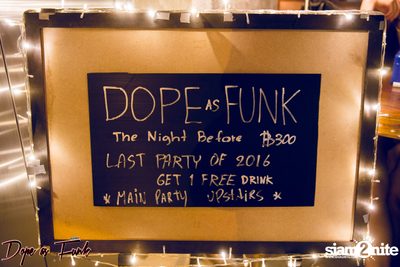 DOPE AS FUNK
The Night Before ฿300
LAST PARTY OF 2016
GET 1 FREE DRINK
* MAIN PARTY UPSTAIRS *
Dope as Funk
siam2nite